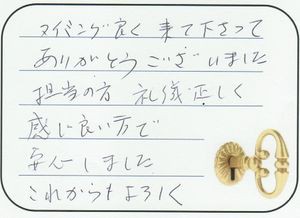 タイミング良く来て下さって
ありがとうございました
担当の方 礼儀正しく
感じ良い方で
安心しました
これからもよろしく